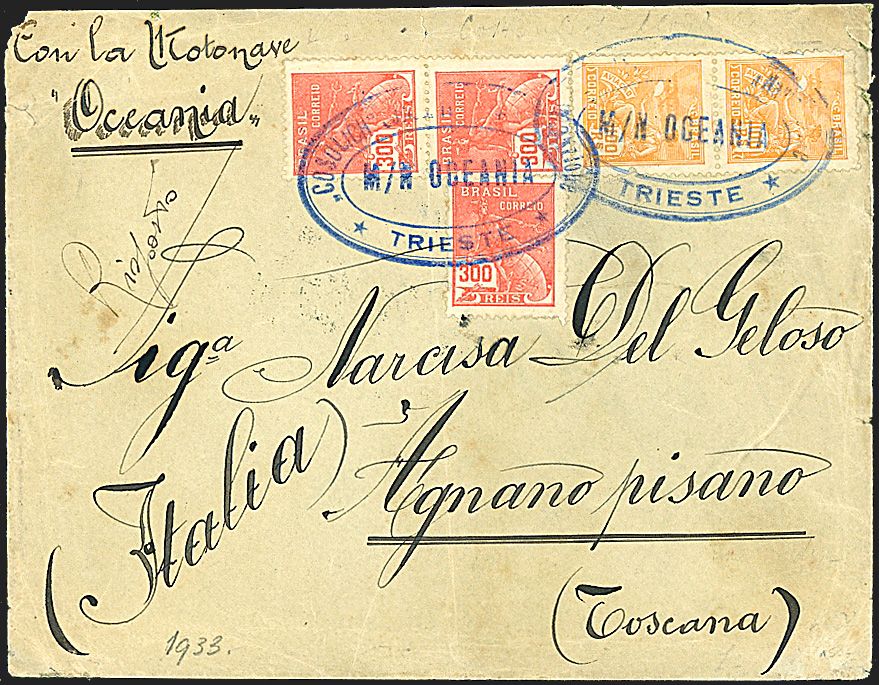 Con la Motonave
"Oceania"
BRASIL CORREIO 300
BRASIL CORREIO 300 REIS
BRASIL CORREIO 300 REIS
CORREIO BRASIL
CORREIO BRASIL
M/N OCEANIA
TRIESTE
M/N OCEANIA
TRIESTE
Sig.a Narcisa Del Geloso
Agnano pisano
(Italia)
(Toscana)
1933.